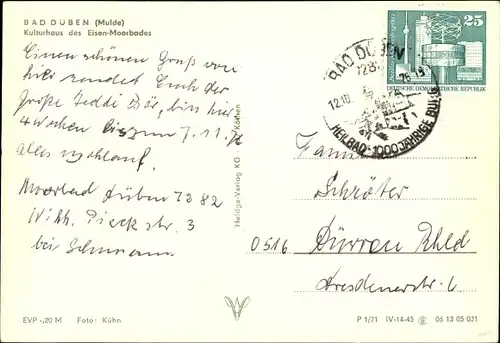 BAD DÜBEN (Mulde)
Kulturhaus des Eisen-Moorbades
Einen schönen Gruß von
hier sendet Euch der
große Teddi Bär, bin hier
4 Wochen bis zum 7.11.
alles wohlauf.
Moorbad Düben 7282
Wilh. Pieck str. 3
bei
Heldge-Verlag KG Köthen
BAD DÜBEN
728
12.10.
HEILBAD · 1000JÄHRIGE BURG
25
DEUTSCHE DEMOKRATISCHE REPUBLIK
Familie
Schröter
0516 Dürren Rhld
Dresdenerstr.
EVP -,20 M Foto: Kühn
P 1/71 IV-14-45 06 13 05 031